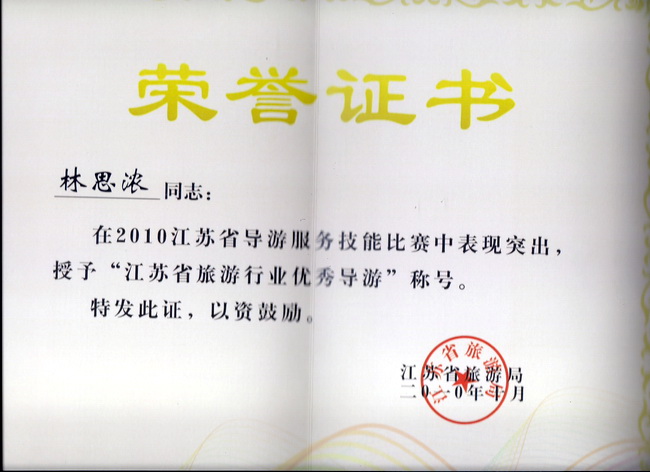 荣誉证书
林思浓 同志：
在2010江苏省导游服务技能比赛中表现突出，
授予“江苏省旅游行业优秀导游”称号。
特发此证，以资鼓励。
江苏省旅游局
江苏省旅游局
二〇一〇年十月